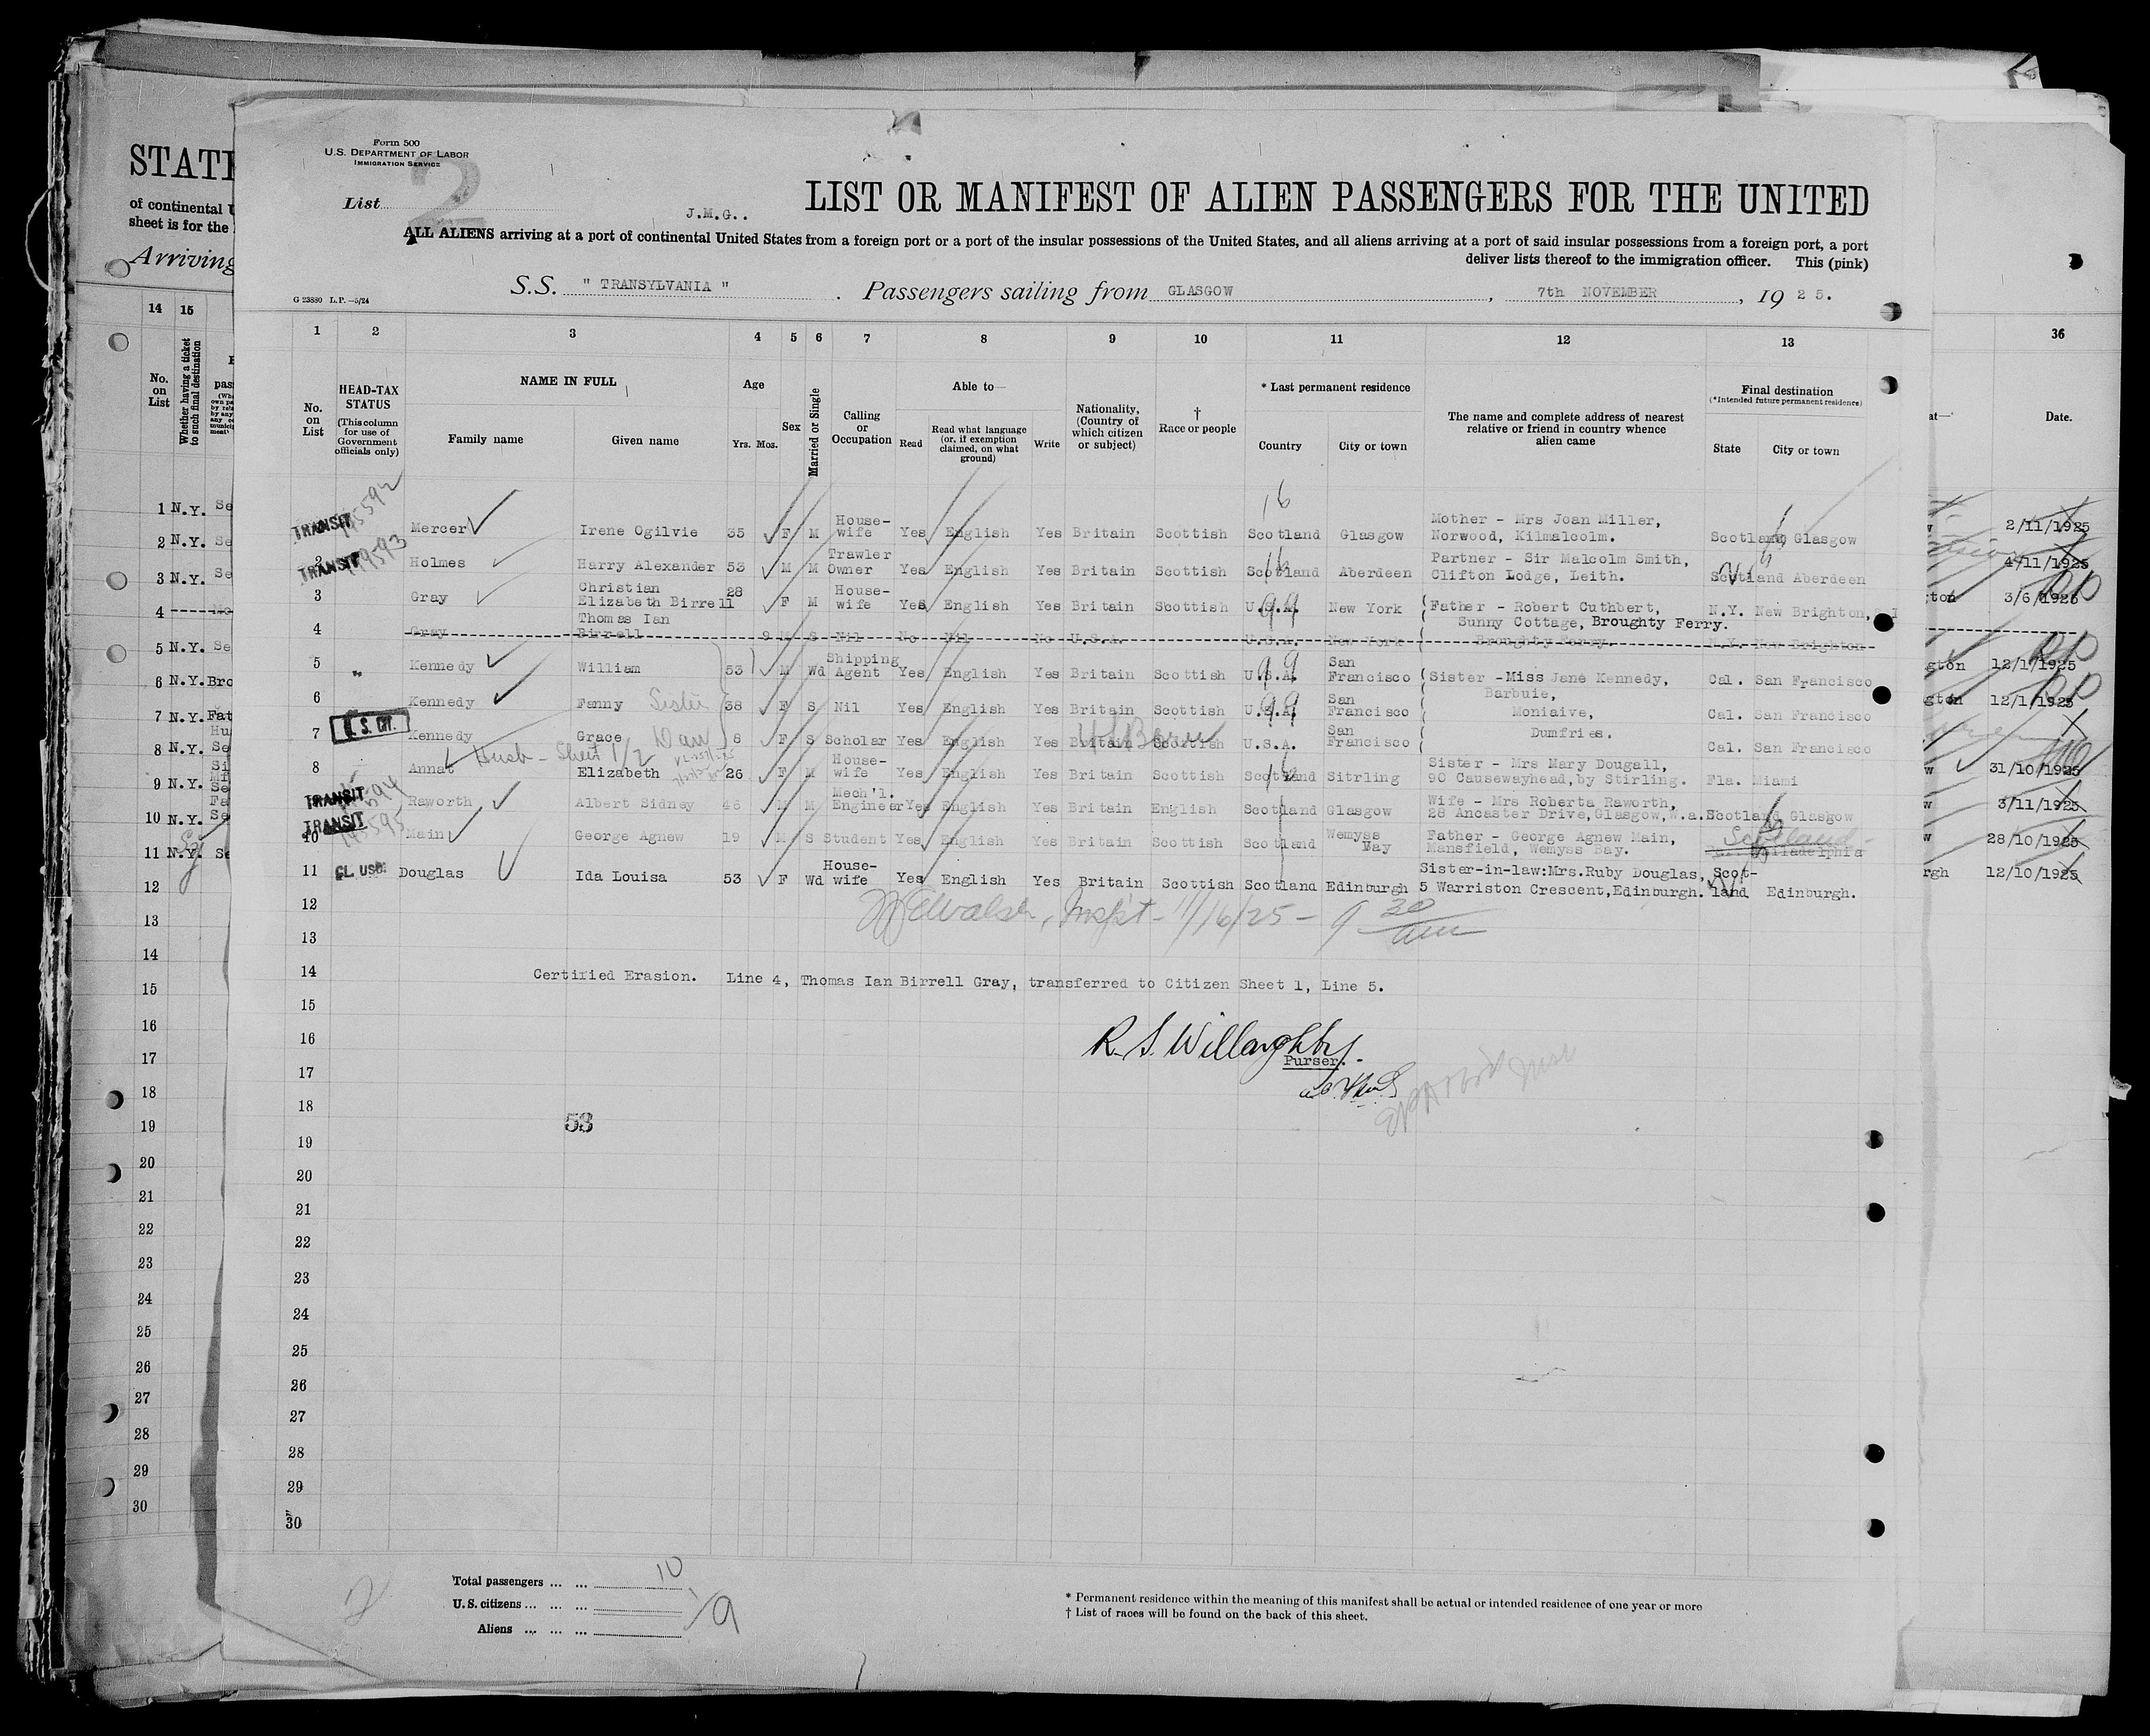 Form 500
U.S. DEPARTMENT OF LABOR
IMMIGRATION SERVICE
2
List
J.M.G..
LIST OR MANIFEST OF ALIEN PASSENGERS FOR THE UNITED
ALL ALIENS arriving at a port of continental United States from a foreign port or a port of the insular possessions of the United States, and all aliens arriving at a port of said insular possessions from a foreign port, a port
deliver lists thereof to the immigration officer. This (pink)
G 23880 L.P.—5/24
S.S. " TRANSYLVANIA " . Passengers sailing from GLASGOW , 7th NOVEMBER , 19 2 5.
1 2 3 4 5 6 7 8 9 10 11 12 13
No. on List
HEAD-TAX STATUS
(This column for use of Government officials only)
NAME IN FULL
Family name Given name
Age
Yrs. Mos.
Sex
Married or Single
Calling or Occupation
Able to—
Read
Read what language (or, if exemption claimed, on what ground)
Write
Nationality, (Country of which citizen or subject)
† Race or people
* Last permanent residence
Country City or town
The name and complete address of nearest relative or friend in country whence alien came
Final destination
(*Intended future permanent residence)
State City or town
TRANSIT Mercer Irene Ogilvie 35 F M House-wife Yes English Yes Britain Scottish Scotland Glasgow Mother - Mrs Joan Miller, Norwood, Kilmalcolm. Scotland Glasgow
2 TRANSIT Holmes Harry Alexander 53 M M Trawler Owner Yes English Yes Britain Scottish Scotland Aberdeen Partner - Sir Malcolm Smith, Clifton Lodge, Leith. Scotland Aberdeen
3 Gray Christian Elizabeth Birrell 28 F M House-wife Yes English Yes Britain Scottish U.S.A. New York Father - Robert Cuthbert, Sunny Cottage, Broughty Ferry. N.Y. New Brighton,
4 Gray Thomas Ian Birrell 9 M S Nil No Nil No U.S.A. U.S.A. New York Broughty Ferry. N.Y. New Brighton
5 Kennedy William 53 M Wd Shipping Agent Yes English Yes Britain Scottish U.S.A. San Francisco Sister -Miss Jane Kennedy, Cal. San Francisco
6 Kennedy Fanny Sister 38 F S Nil Yes English Yes Britain Scottish U.S.A. San Francisco Barbuie, Moniaive, Cal. San Francisco
7 U.S. CIT. Kennedy Grace 8 F S Scholar Yes English Yes Britain Scottish U.S.A. San Francisco Dumfries. Cal. San Francisco
Husb - Sheet 1/2
8 Annat Elizabeth 26 F M House-wife Yes English Yes Britain Scottish Scotland Sitrling Sister - Mrs Mary Dougall, 90 Causewayhead, by Stirling. Fla. Miami
TRANSIT Raworth Albert Sidney 46 M M Mech'l. Engineer Yes English Yes Britain English Scotland Glasgow Wife - Mrs Roberta Raworth, 28 Ancaster Drive, Glasgow, W.a. Scotland Glasgow
10 TRANSIT Main George Agnew 19 M S Student Yes English Yes Britain Scottish Scotland Wemyss Bay Father - George Agnew Main, Mansfield, Wemyss Bay. Scotland Philadelphia
11 Douglas Ida Louisa 53 F Wd House-wife Yes English Yes Britain Scottish Scotland Edinburgh Sister-in-law:Mrs.Ruby Douglas, 5 Warriston Crescent,Edinburgh. Scot-land Edinburgh.
12
11/16/25 - 9 30 am
13
14 Certified Erasion. Line 4, Thomas Ian Birrell Gray, transferred to Citizen Sheet 1, Line 5.
15
16 R. S. Willoughby
Purser.
17
18
53
19
20
21
22
23
24
25
26
27
28
29
30
Total passengers ... ... 10
U.S. citizens ... ... ... 1
Aliens ... ... ... 9
2
* Permanent residence within the meaning of this manifest shall be actual or intended residence of one year or more
† List of races will be found on the back of this sheet.
STATE
of continental U
sheet is for the
Arriving
14 15
No. on List
Whether having a ticket to such final destination
1 N.Y. Se
2 N.Y. Se
3 N.Y. Se
4
5 N.Y. Se
6 N.Y. Bro
7 N.Y. Fat
8 N.Y. Se
9 N.Y. Se
10 N.Y. Se
11 N.Y. Se
12
13
14
15
16
17
18
19
20
21
22
23
24
25
26
27
28
29
30
36
Date.
2/11/1925
4/11/1925
3/6/1925
12/1/1925
12/1/1925
31/10/1925
3/11/1925
28/10/1925
12/10/1925